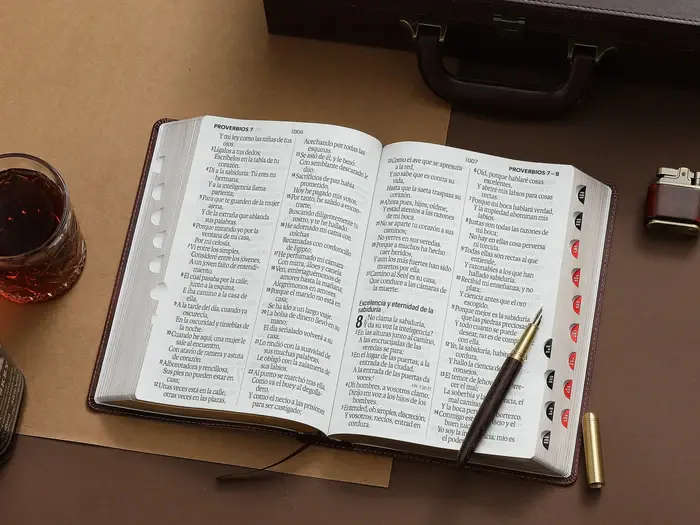 PROVERBIOS 7
1006
Y mi ley como las niñas de tus
ojos.
3 Lígalos a tus dedos;
Escríbelos en la tabla de tu
corazón.
4 Di a la sabiduría: Tú eres mi
hermana,
Y a la inteligencia llama
parienta;
5 Para que te guarden de la mujer
ajena,
Y de la extraña que ablanda
sus palabras.
6 Porque mirando yo por la
ventana de mi casa,
Por mi celosía,
7 Vi entre los simples,
Consideré entre los jóvenes,
A un joven falto de entendi-
miento,
8 El cual pasaba por la calle,
junto a la esquina,
E iba camino a la casa de
ella,
9 A la tarde del día, cuando ya
oscurecía,
En la oscuridad y tinieblas de
la noche.
10 Cuando he aquí, una mujer le
sale al encuentro,
Con atavío de ramera y astuta
de corazón.
11 Alborotadora y rencillosa,
Sus pies no pueden estar en
casa;
12 Unas veces está en la calle,
otras veces en las plazas,
Acechando por todas las
esquinas.
13 Se asió de él, y le besó.
Con semblante descarado le
dijo:
14 Sacrificios de paz había
prometido,
Hoy he pagado mis votos;
15 Por tanto, he salido a encon-
trarte,
Buscando diligentemente tu
rostro, y te he hallado.
16 He adornado mi cama con
colchas
Recamadas con cordoncillo
de Egipto;
17 He perfumado mi cámara
Con mirra, áloes y canela.
18 Ven, embriaguémonos de
amores hasta la mañana;
Alegrémonos en amores.
19 Porque el marido no está en
casa;
Se ha ido a un largo viaje.
20 La bolsa de dinero llevó en su
mano;
El día señalado volverá a su
casa.
21 Lo rindió con la suavidad de
sus muchas palabras,
Le obligó con la zalamería de
sus labios.
22 Al punto se marchó tras ella,
Como va el buey al degolla-
dero,
Y como el necio a las prisiones
para ser castigado;
1007
PROVERBIOS 7–8
Como el ave que se apresura
a la red,
Y no sabe que es contra su
vida,
Hasta que la saeta traspasa su
corazón.
24 Ahora pues, hijos, oídme,
Y estad atentos a las razones
de mi boca.
25 No se aparte tu corazón a sus
caminos;
No yerres en sus veredas.
26 Porque a muchos ha hecho
caer heridos,
Y aun los más fuertes han sido
muertos por ella.
27 Camino al Seol es su casa,
Que conduce a las cámaras de
la muerte.
Excelencia y eternidad de la
sabiduría
8 ¿No clama la sabiduría,
Y da su voz la inteligencia?
2 En las alturas junto al camino,
A las encrucijadas de las
veredas se para;
3 En el lugar de las puertas, a la
entrada de la ciudad,
A la entrada de las puertas da
voces:
4 Oh hombres, a vosotros clamo;
Dirijo mi voz a los hijos de los
hombres.
5 Entended, oh simples, discreción;
Y vosotros, necios, entrad en
cordura.
6 Oíd, porque hablaré cosas
excelentes,
Y abriré mis labios para cosas
rectas.
7 Porque mi boca hablará verdad,
Y la impiedad abominan mis
labios.
8 Justas son todas las razones
de mi boca;
No hay en ellas cosa perversa
ni torcida.
9 Todas ellas son rectas al que
entiende,
Y razonables a los que han
hallado sabiduría.
10 Recibid mi enseñanza, y no
plata;
Y ciencia antes que el oro
escogido.
11 Porque mejor es la sabiduría
que las piedras preciosas;
Y todo cuanto se puede
desear, no es de compa
con ella.
12 Yo, la sabiduría, habito
cordura,
Y hallo la ciencia de los
consejos.
13 El temor de Jehová es
cer el mal;
La soberbia y la
el mal camino,
Y la boca perversa, aborrezco.
14 Conmigo está el consejo y el
buen juicio;
Yo soy la inteligencia; mío es
el poder.